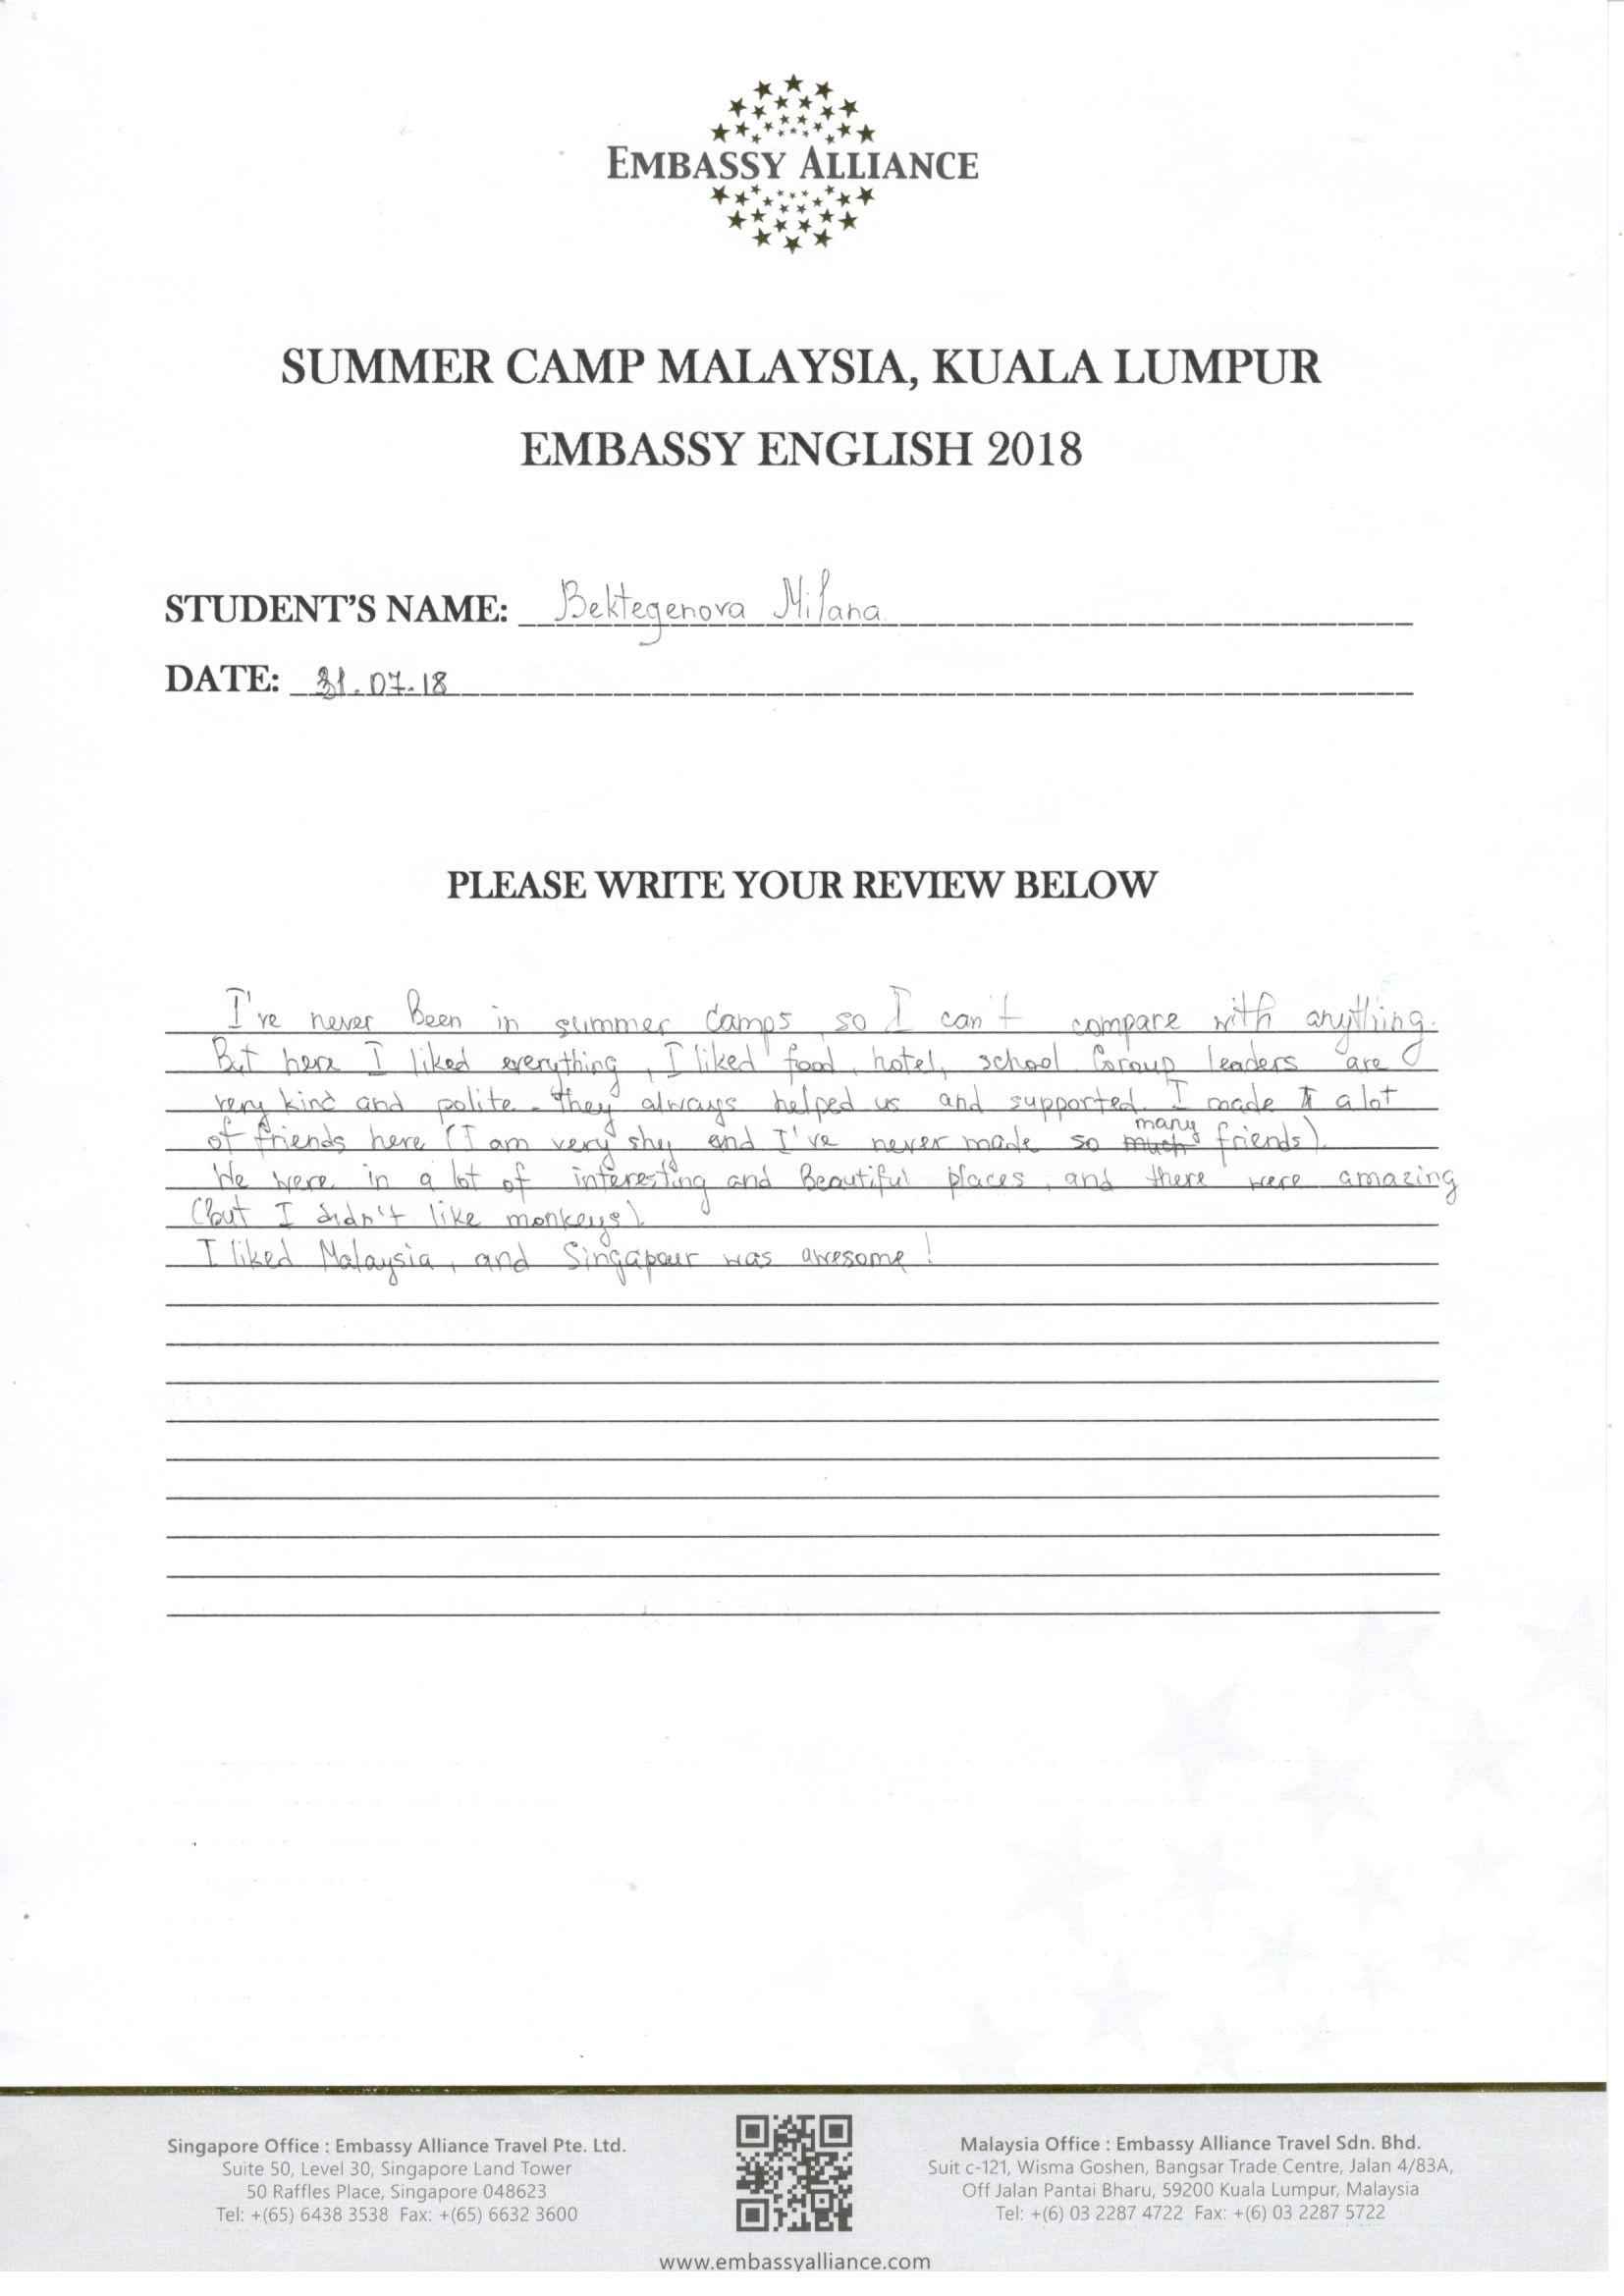 EMBASSY ALLIANCE
SUMMER CAMP MALAYSIA, KUALA LUMPUR
EMBASSY ENGLISH 2018
STUDENT'S NAME: Bektegenova Milana
DATE: 31.07.18
PLEASE WRITE YOUR REVIEW BELOW
I've never Been in summer camps, so I can't compare with anything.
But here I liked everything, I liked food, hotel, school. Group leaders are
very kind and polite. They always helped us and supported. I made a lot
of friends here (I am very shy and I've never made so much many friends).
We were in a lot of interesting and Beautiful places, and there were amazing
(but I didn't like monkeys).
I liked Malaysia, and Singapour was awesome!
Singapore Office : Embassy Alliance Travel Pte. Ltd.
Suite 50, Level 30, Singapore Land Tower
50 Raffles Place, Singapore 048623
Tel: +(65) 6438 3538 Fax: +(65) 6632 3600
Malaysia Office : Embassy Alliance Travel Sdn. Bhd.
Suit c-121, Wisma Goshen, Bangsar Trade Centre, Jalan 4/83A,
Off Jalan Pantai Bharu, 59200 Kuala Lumpur, Malaysia
Tel: +(6) 03 2287 4722 Fax: +(6) 03 2287 5722
www.embassyalliance.com